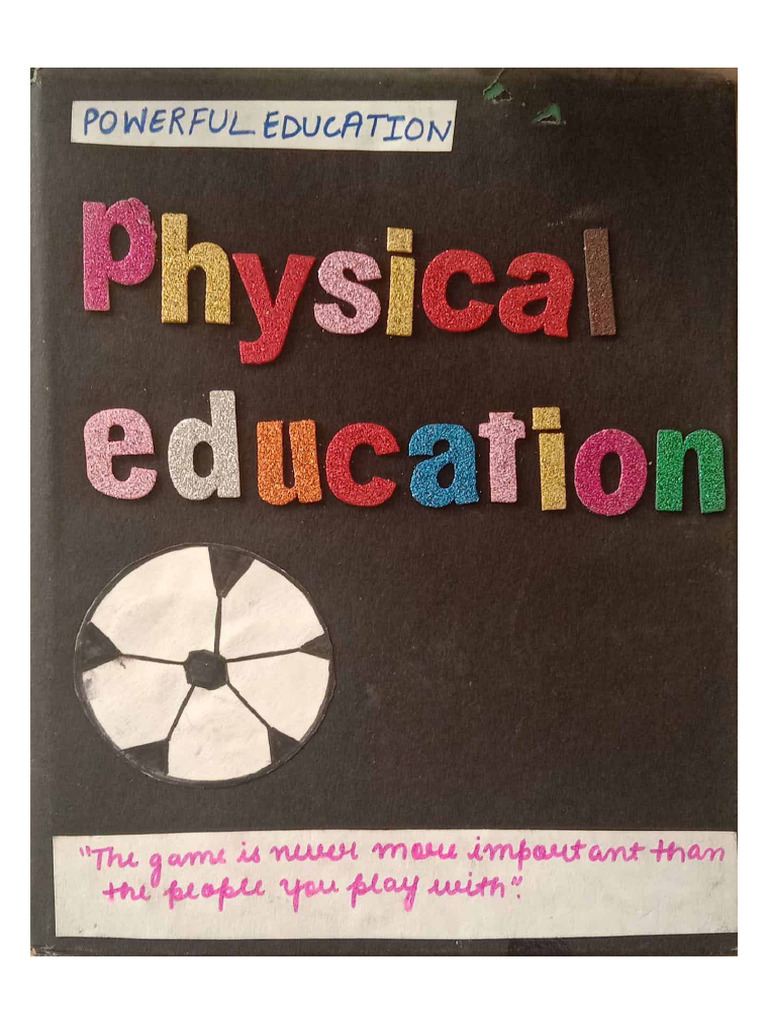 POWERFUL EDUCATION
physical
education
"The game is never more important than
the people you play with".